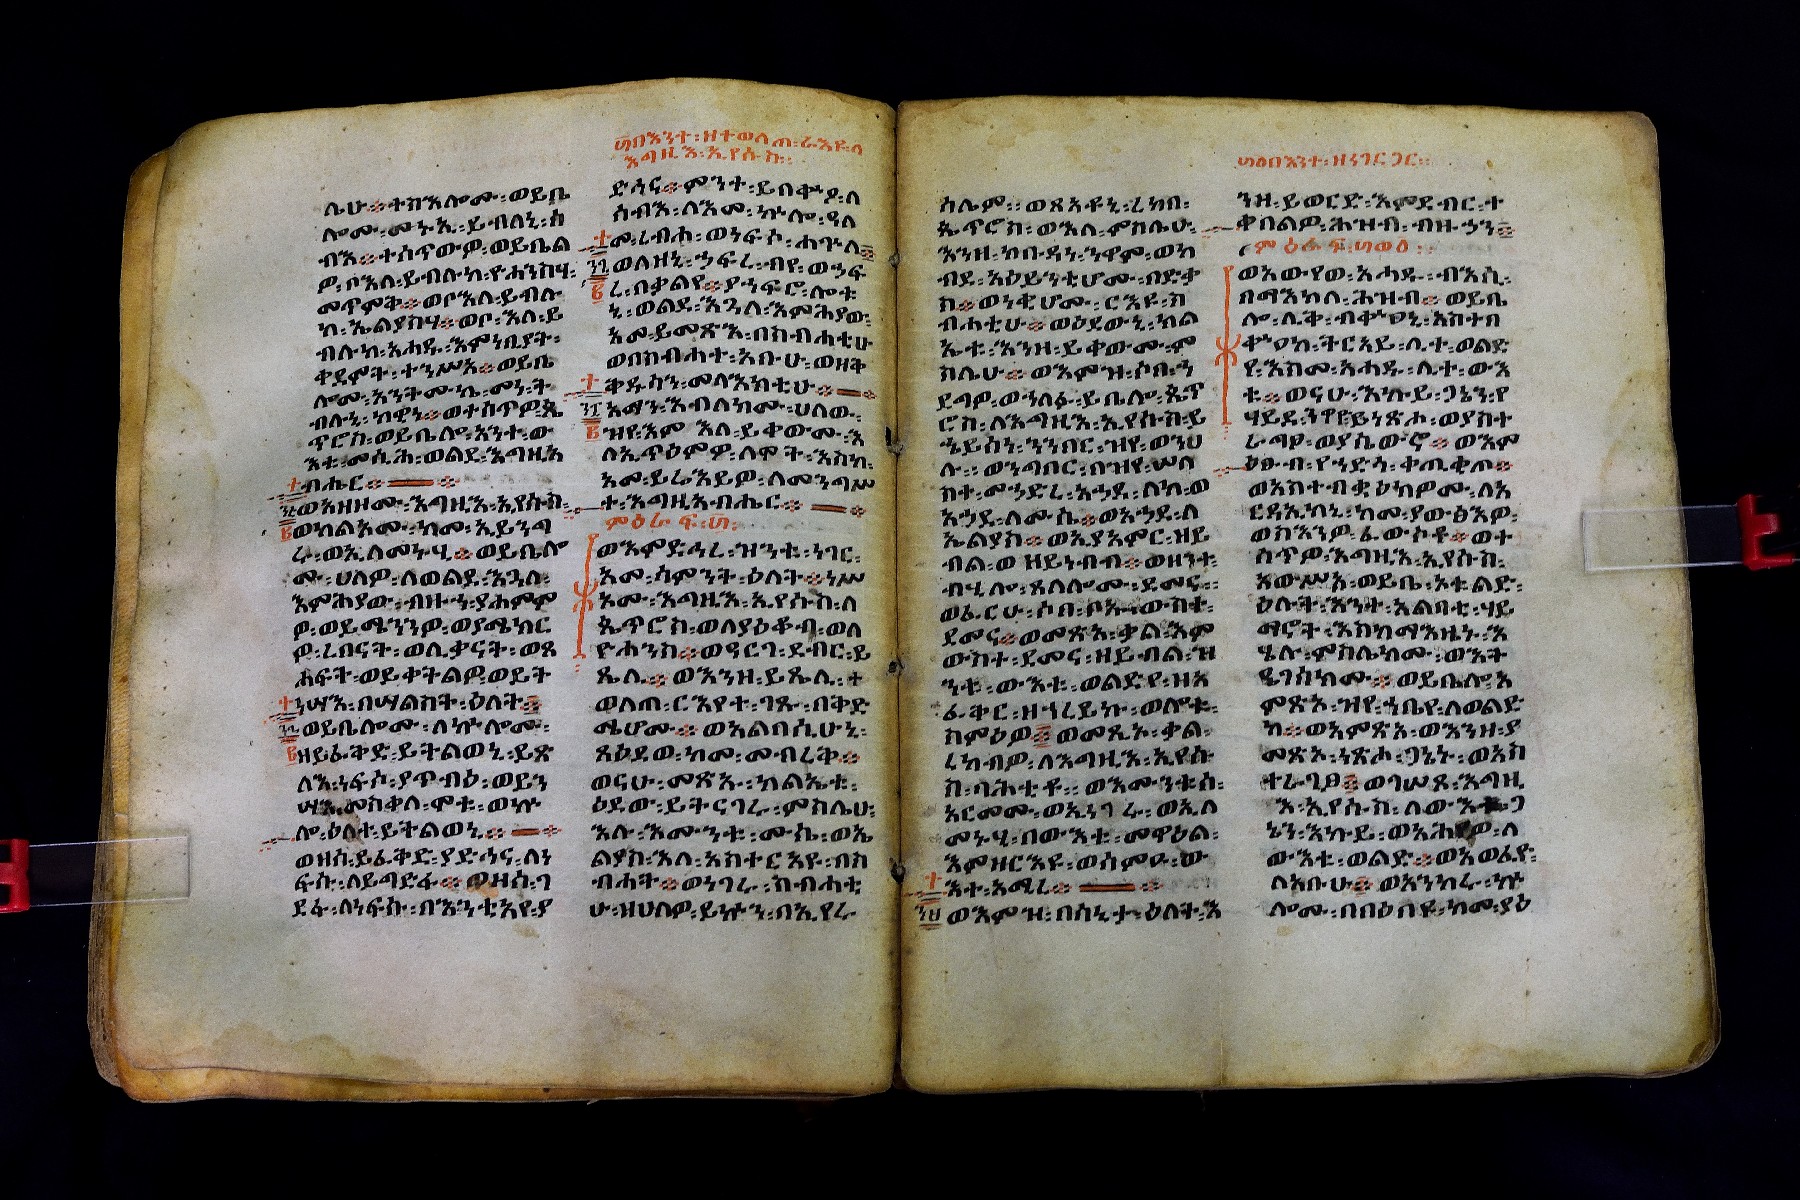 ፴፬በእንተ፡ዘተወለጠ፡ራእዩ፡ለ
እግዚእ፡ኢየሱስ፡
ሌሁ፡ተስእሎሙ፡ወይቤ
ሎሙ፡መኑ፡እ፡ይብለኒ፡ስ
ብእ፡ተሰጥውዎ፡ወይቤል
ዎ፡ቦእለ፡ይብሉከ፡ዮሐንስሃ፡
መጥምቅ፡ወቦእለ፡ይብሉ
ከ፡ኤልያስሃ፡ወቦ፡እለ፡ይ
ብሉከ፡አሐዱ፡እምነቢያት፡
ቀደምት፡ተንሥአ፡ወይቤ
ሎሙ፡አንትሙኬ፡መነ፡ት
ብሉኒ፡ከዊነ፡ወተሰጥዎ፡ጴ
ጥሮስ፡ወይቤሎ፡አንተ፡ው
እቱ፡መሲሕ፡ወልደ፡እግዚአ
ብሔር፡
ወአዘዞሙ፡እግዚእ፡ኢየሱስ፡
ወከልአሙ፡ከመ፡ኢይንግ
ሩ፡ወኢለመኑሂ፡ወይቤሎ
ሙ፡ሀለዎ፡ለወልደ፡እጓለ፡
እምሕያው፡ብዙኀ፡ያሐምም
ዎ፡ወይሜንንዎ፡ወያሜክር
ዎ፡ረበናት፡ወሊቃናት፡ወጸ
ሐፍት፡ወይቀትልዎ፡ወይት
ነሣእ፡በሣልስት፡ዕለት፡
ወይቤሎሙ፡ለኵሎሙ፡
ዘይፈቅድ፡ይትልወኒ፡ይጽ
ለእ፡ነፍሶ፡ያጥብዕ፡ወይን
ሣእ፡መስቀለ፡ሞቱ፡ወኵ
ሎ፡ዕለተ፡ይትልወኒ፡
ወዘሰ፡ይፈቅድ፡ያድኅና፡ለነ
ፍሱ፡ለይግድፋ፡ወዘሰ፡ገ
ደፋ፡ለነፍሱ፡በእንቲአየ፡ያ
ድኅና፡ምንተ፡ይበቍዖ፡ለ
ሰብእ፡ለእመ፡ኵሎ፡ዓለ
መ፡ረብሐ፡ወነፍሶ፡ሐጕለ፡
ወለዘኒ፡ኀፍረ፡ብየ፡ወኀፍ
ረ፡በቃልየ፡ያኀፍሮ፡ሎቱ
ኒ፡ወልደ፡እጓለ፡እምሕያው፡
አመ፡ይመጽእ፡በስብሐቲሁ
ወበስብሐተ፡አቡሁ፡ወዘቅ
ቅዱሳን፡መላእክቲሁ፡
አማን፡እብለክሙ፡ሀለው፡
ዝየ፡እም፡እለ፡ይቀውሙ፡እ
ለኢጥዕምዎ፡ለሞት፡እስከ፡
አመ፡ይሬእይዎ፡ለመንግሥ
ተ፡እግዚአብሔር፡
ምዕራፍ፡፴፡
ወእምድኅረ፡ዝንቱ፡ነገር፡
አመ፡ሳምንት፡ዕለት፡ነሥ
ኦሙ፡እግዚእ፡ኢየሱስ፡ለ
ጴጥሮስ፡ወለያዕቆብ፡ወለ
ዮሐንስ፡ወዓርገ፡ደብር፡ይ
ጼሊ፡ወእንዘ፡ይጼሊ፡ተ
ወለጠ፡ርእየተ፡ገጹ፡በቅድ
ሜሆሙ፡ወአልባሲሁኒ፡
ጸዕደወ፡ከመ፡መብረቅ፡
ወናሁ፡መጽኡ፡ክልኤቱ፡
ዕደው፡ይትናገሩ፡ምስሌሁ፡
እሉ፡እሙንቱ፡ሙሴ፡ወኤ
ልያስ፡እለ፡አስተርአዩ፡በስ
ብሐት፡ወነገሩ፡ስብሐቲ
ሁ፡ዘሀለዎ፡ይኩን፡በኢየሩ
፴፭በእንተ፡ዘንገርጋር፡
ሳሌም፡ወጸአቶኒ፡ረከቡ፡
ጴጥሮስ፡ወእለ፡ምስሌሁ፡
እንዘ፡ከቡዳነ፡ንዋም፡ወከ
ብደ፡አዕይንቲሆሙ፡በድቃ
ስ፡ወነቂሆሙ፡ርእዩ፡ስ
ብሐቲሁ፡ወዕደውኒ፡ክል
ኤቱ፡እንዘ፡ይቀውሙ፡ም
ስሌሁ፡ወእምዝ፡ሶበ፡ኀ
ደግዎ፡ወኀለፉ፡ይቤሎ፡ጴጥ
ሮስ፡ለእግዚእ፡ኢየሱስ፡ይ
ኄይሰነ፡ንንበር፡ዝየ፡ወንሀ
ሉ፡ወንግበር፡በዝየ፡ሠለ
ስተ፡መኃድረ፡አኃደ፡ለከ፡ወ
አኃደ፡ለሙሴ፡ወአኃደ፡ለ
ኤልያስ፡ወኢያአምር፡ዘይ
ብል፡ወዘይነብብ፡ወዘንተ፡
ብሂሎ፡ጸለሎሙ፡ደመና፡
ወፈርሁ፡ሶበ፡ቦኡ፡ውስተ፡
ደመና፡ወመጽአ፡ቃል፡እም
ውስተ፡ደመና፡ዘይብል፡ዝ
ንቱ፡ውእቱ፡ወልድየ፡ዘአ
ፈቅር፡ዘኀረይኩ፡ወሎቱ፡
ስምዕዎ፡ወመጺኦ፡ቃል፡
ረከብዎ፡ለእግዚእ፡ኢየሱ
ስ፡ባሕቲቶ፡ወእሙንቱሰ፡
አርመሙ፡ወኢነገሩ፡ወኢለ
መኑሂ፡በውእቱ፡መዋዕል፡
እምዘርእዩ፡ወሰምዑ፡ው
እተ፡አሚረ፡
ወእምዝ፡በሳኒታ፡ዕለት፡እ
ንዘ፡ይወርድ፡እምደብር፡ተ
ቀበልዎ፡ሕዝብ፡ብዙኃን፡
ምዕራፍ፡፴ወዕ፡
ወአውየወ፡አሐዱ፡ብእሲ፡
በማእከለ፡ሕዝብ፡ወይቤ
ሎ፡ሊቅ፡ብቍዐኒ፡አስተበ
ቍዐከ፡ትርአይ፡ሊተ፡ወልድ
የ፡እስመ፡አሐዱ፡ሊተ፡ውእ
ቱ፡ወናሁ፡እኩይ፡ጋኔን፡የ
ኀይዶ፡
ራግፆ፡ወያስ
ዕፁብ፡የኀድጎ፡ቀጢቂጦ፡
ወአስተብቋዕክዎሙ፡ለአ
ርዳኢከኒ፡ከመ፡ያውፅእዎ፡
ወስእንዎ፡ፈውሶቶ፡ወተ
ሰጥዎ፡እግዚእ፡ኢየሱስ፡
አውሥአ፡ወይቤ፡
ዕሉት፡እንተ፡አልባቲ፡ሃይ
ማኖት፡እስከ፡ማእዜኑ፡እ
ሄሉ፡ምስሌክሙ፡ወእት
ዔገሰክሙ፡ወይቤሎ፡አ
ምጽኦ፡ዝየ፡ኀቤየ፡ለወልድ
ከ፡ወአምጽኦ፡ወእንዘ፡ያ
መጽኦ፡ነጽሖ፡ጋኔኑ፡ወአስ
ተራገፆ፡ወገሠጾ፡እግዚ
እ፡ኢየሱስ፡ለውእቱ፡ጋ
ኔን፡እኩይ፡ወአሕየዎ፡ለ
ውእቱ፡ወልድ፡ወአወፈዮ፡
ለአቡሁ፡ወአንከሩ፡ኵ
ሎሙ፡በበዕበዩ፡ከመ፡ያዕ